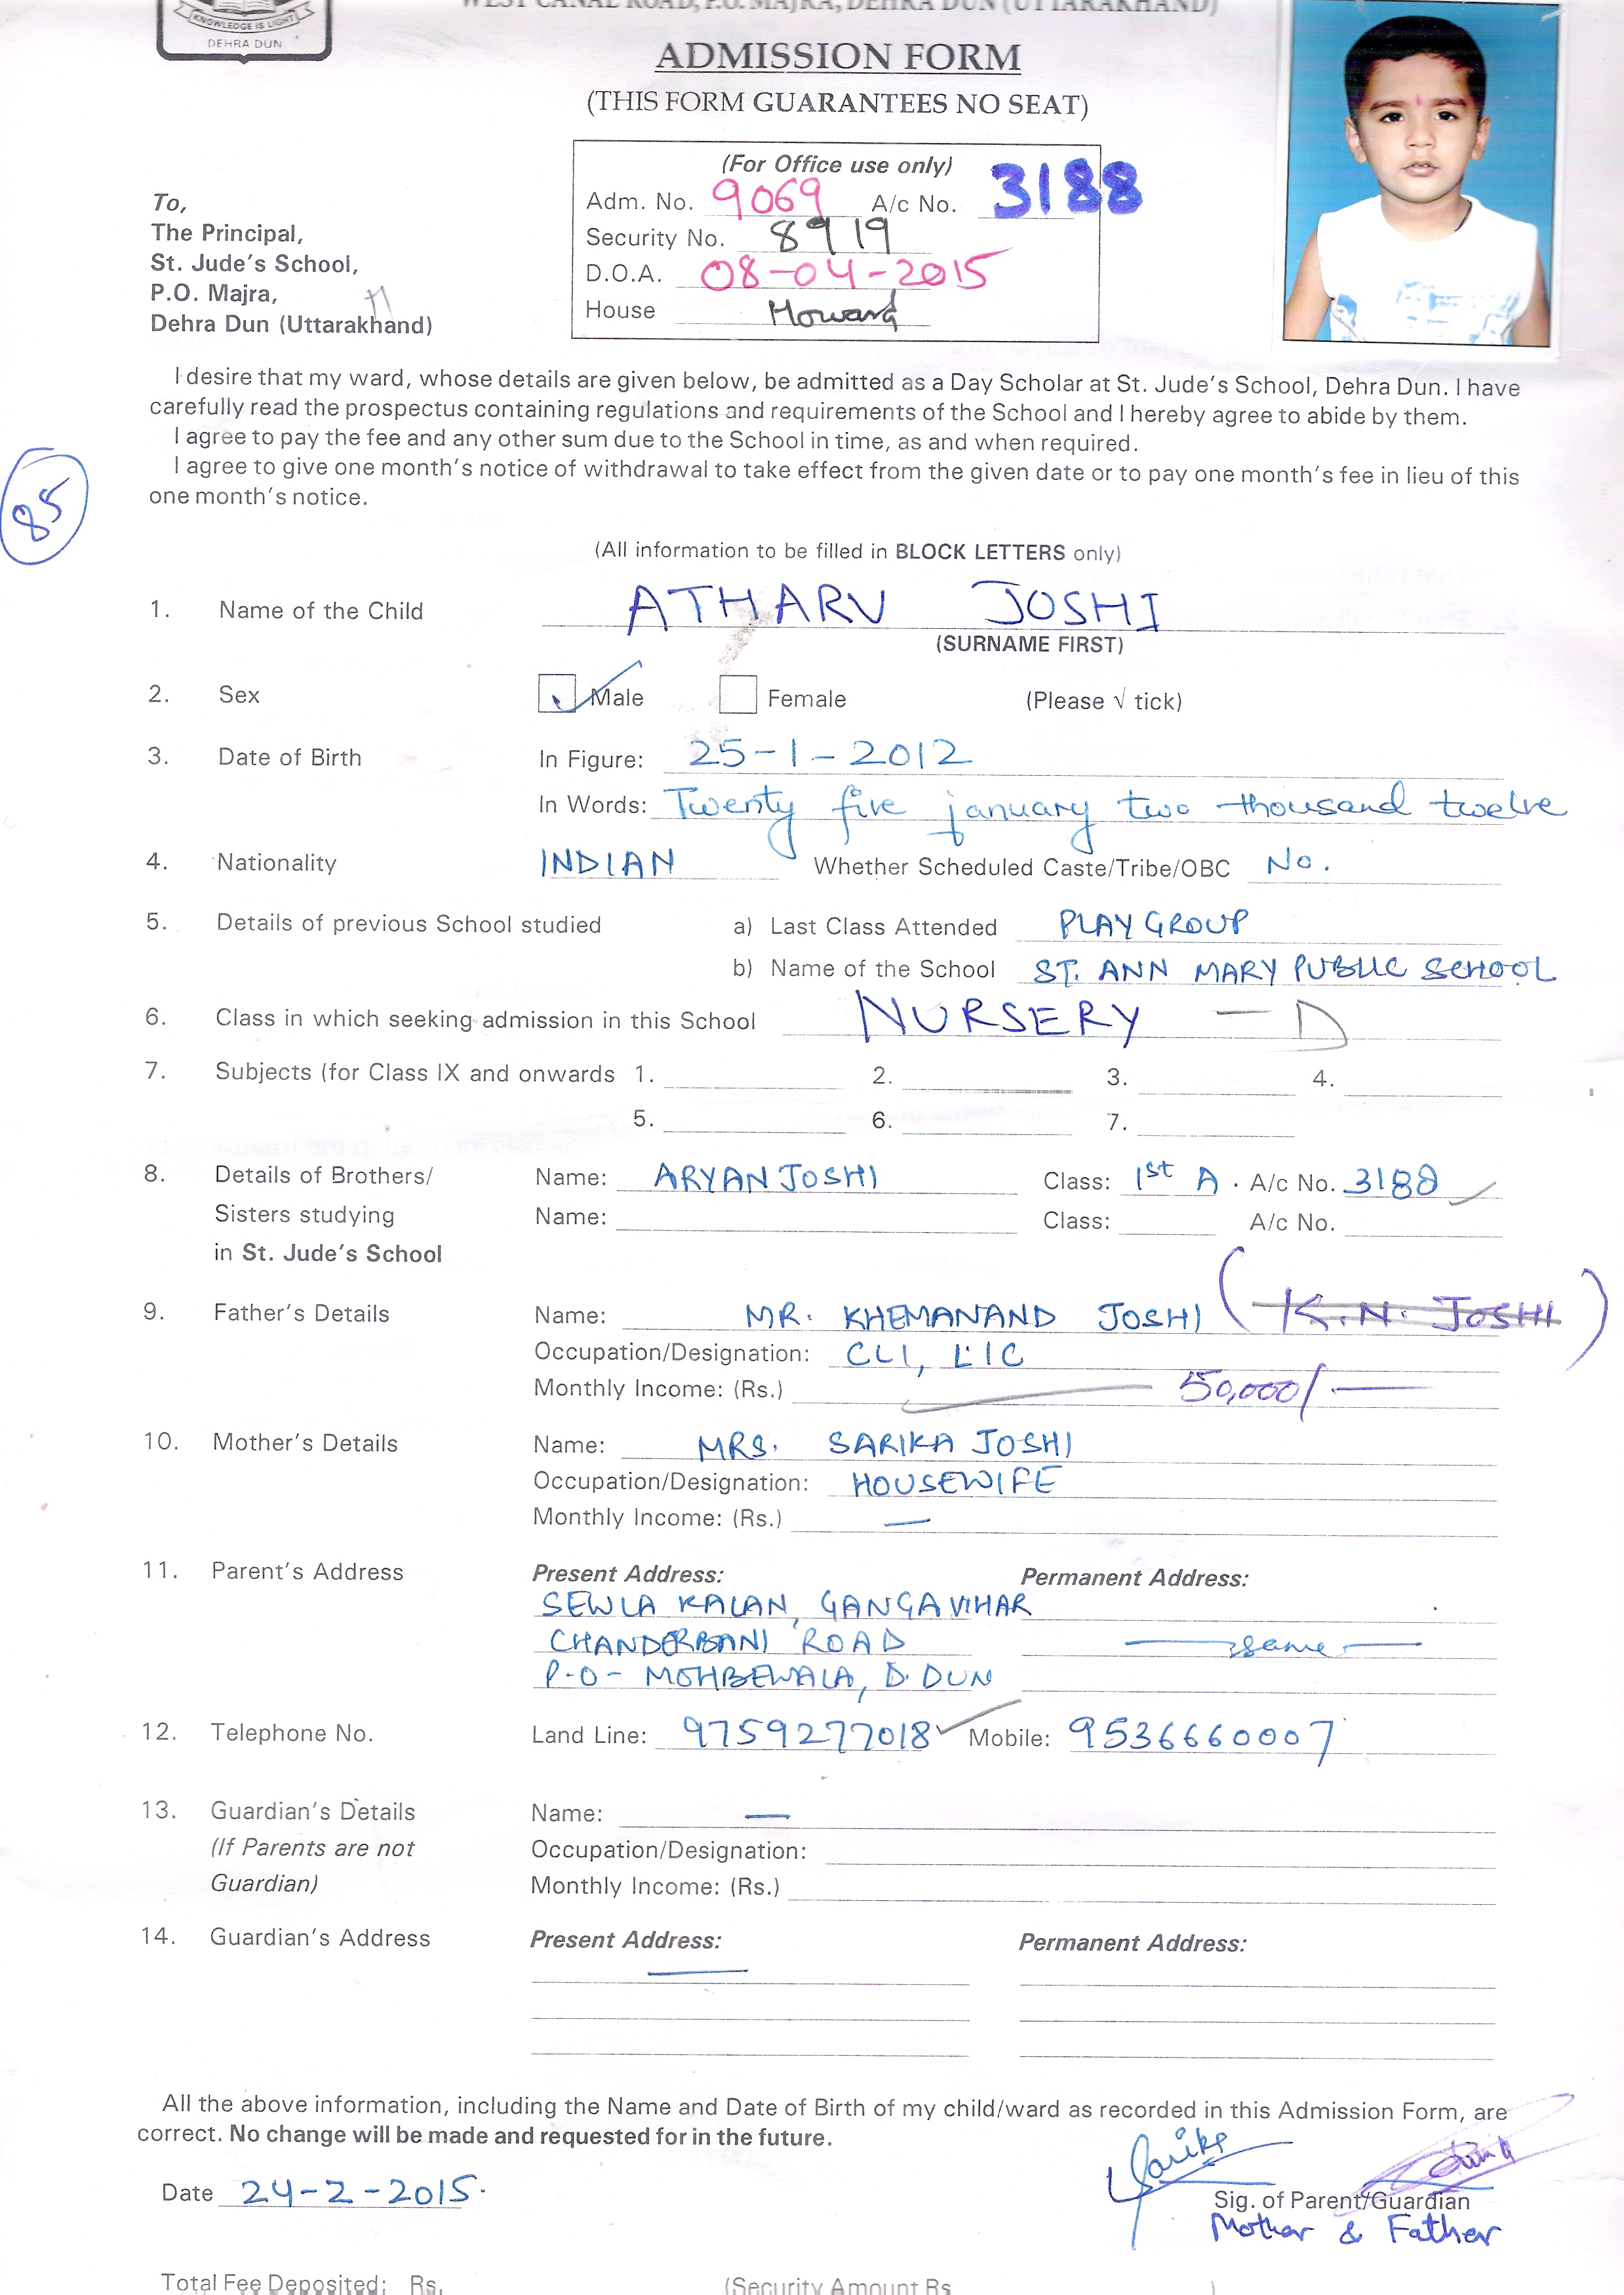 KNOWLEDGE IS LIGHT
DEHRA DUN
WEST CANAL ROAD, P.O. MAJRA, DEHRA DUN (UTTARAKHAND)
ADMISSION FORM
(THIS FORM GUARANTEES NO SEAT)
(For Office use only)
Adm. No. 9069 A/c No. 3188
Security No. 8919
D.O.A. 08-04-2015
House Howard
To,
The Principal,
St. Jude's School,
P.O. Majra,
Dehra Dun (Uttarakhand)
I desire that my ward, whose details are given below, be admitted as a Day Scholar at St. Jude's School, Dehra Dun. I have
carefully read the prospectus containing regulations and requirements of the School and I hereby agree to abide by them.
I agree to pay the fee and any other sum due to the School in time, as and when required.
I agree to give one month's notice of withdrawal to take effect from the given date or to pay one month's fee in lieu of this
one month's notice.
85
(All information to be filled in BLOCK LETTERS only)
1. Name of the Child ATHARV JOSHI
(SURNAME FIRST)
2. Sex Male Female (Please √ tick)
3. Date of Birth In Figure: 25-1-2012
In Words: Twenty five january two thousand twelve
4. Nationality INDIAN Whether Scheduled Caste/Tribe/OBC No.
5. Details of previous School studied a) Last Class Attended PLAY GROUP
b) Name of the School ST. ANN MARY PUBLIC SCHOOL
6. Class in which seeking admission in this School NURSERY - D
7. Subjects (for Class IX and onwards 1. 2. 3. 4.
5. 6. 7.
8. Details of Brothers/ Name: ARYAN JOSHI Class: 1st A. A/c No. 3188
Sisters studying Name: Class: A/c No.
in St. Jude's School
9. Father's Details Name: MR. KHEMANAND JOSHI (K.N. JOSHI)
Occupation/Designation: CLI, LIC
Monthly Income: (Rs.) 50,000/-
10. Mother's Details Name: MRS. SARIKA JOSHI
Occupation/Designation: HOUSEWIFE
Monthly Income: (Rs.) —
11. Parent's Address Present Address: Permanent Address:
SEWLA KALAN, GANGA VIHAR
CHANDERBANI ROAD — same —
P-O- MOHBEWALA, D. DUN
12. Telephone No. Land Line: 9759277018 Mobile: 9536660007
13. Guardian's Details Name: —
(If Parents are not Occupation/Designation:
Guardian) Monthly Income: (Rs.)
14. Guardian's Address Present Address: Permanent Address:
—
All the above information, including the Name and Date of Birth of my child/ward as recorded in this Admission Form, are
correct. No change will be made and requested for in the future.
Sarika
Date 24-2-2015. Sig. of Parent/Guardian
Mother & Father
Total Fee Deposited: Rs. (Security Amount Rs )